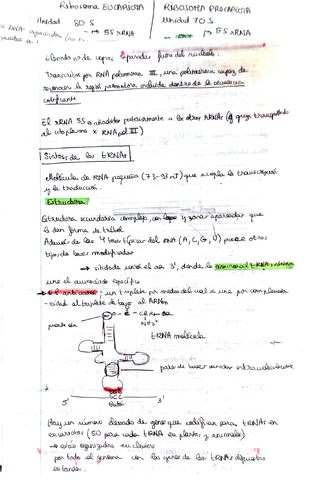 Ribosoma EUCARIOTA
Ribosoma PROCARIOTA
Unidad 80 S
Unidad 70 S
→ 5S rRNA
→ 5S rRNA
Elevado nº de copias separadas fuera del nucleolo.
Transcritos por RNA polimerasa III, una polimerasa capaz de
reconocer la región promotora incluida dentro de la secuencia
codificante
El RNA 5S → añadido posteriormente a los otros rRNAs
al citoplasma x RNA pol III)
Síntesis de los tRNAs
Molécula de RNA pequeña (73-93 nt) que acopla la transcripción
y la traducción.
Estructura
Estructura secundaria compleja, con lazos y zonas apareadas que
le dan forma de trébol.
Además de las 4 bases típicas del RNA (A, C, G, U) posee otros
tipos de bases modificadas
unirá el aa 3', donde la aminoacil tRNA
une el aminoácido específico
→ el anticodón, un triplete por medio del cual se une por complementa
-ridad al triplete de bases al ARNm
O - C - CH - R
NH3+
puente
tRNA molécula
pares de bases unidas intramolecularmente
5'
3'
Hay un número elevado de genes que codifican para tRNAs en
eucariotas (50 para cada tRNA en plantas y animales)
→ están organizadas en clusters
por todo el genoma con los genes de los tRNAs diferentes